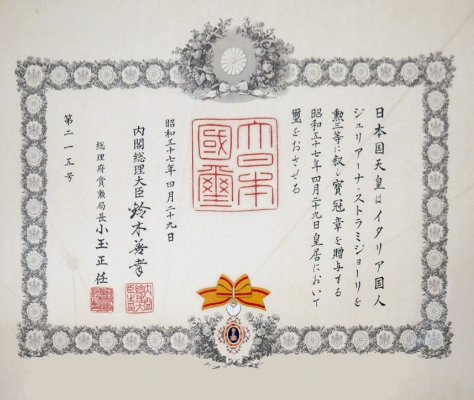 日本国天皇はイタリア国人
ジュリアーナ・ストラミジョーリを
勲三等に叙し寶冠章を贈与する
昭和五十七年四月二十九日皇居において
璽をおさせる
大日本國璽
昭和五十七年四月二十九日
内閣総理大臣 鈴木善幸
総理府賞勲局長 小玉正任
第二一五号